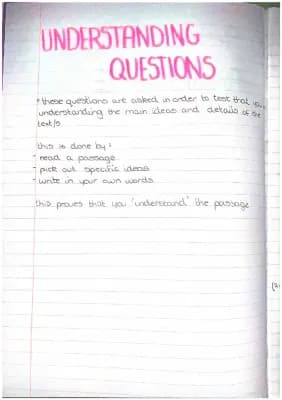 UNDERSTANDING
QUESTIONS
* these questions are asked in order to test that you
understanding the main ideas and details of the
text/s
this is done by:
- read a passage
- pick out specific ideas
- write in your own words
this proves that you 'understand' the passage